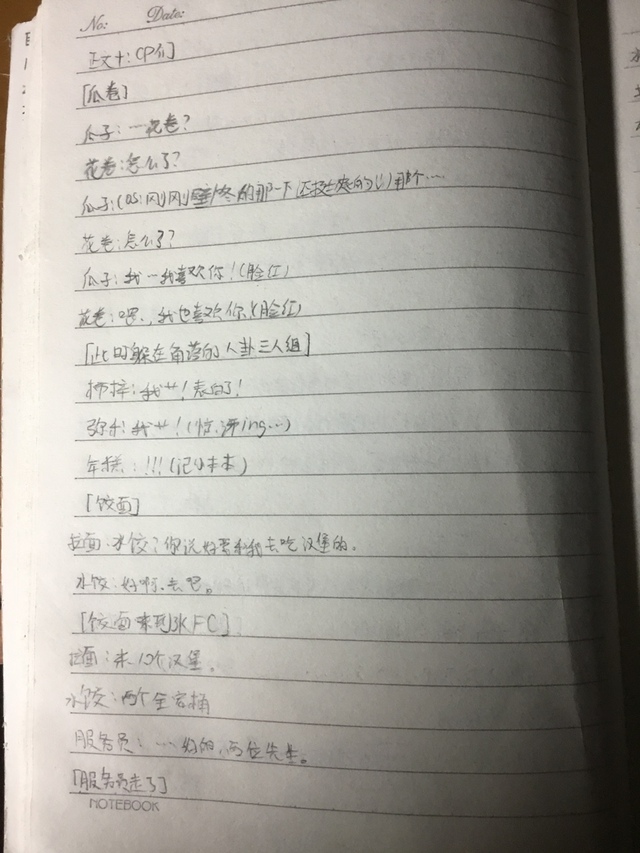 No: Date:
正文十:CP们
[瓜卷]
瓜子:…花卷?
花卷:怎么了?
瓜子:(os:刚刚壁咚的那一下还挺 的)那个…
花卷:怎么了?
瓜子:我…我喜欢你!(脸红)
花卷:嗯、我也喜欢你!(脸红)
[此时躲在角落的八卦三人组]
抻抻:我艹!表白了!
弥卡:我艹!(惊讶ing…)
年糕:!!!(记小本本)
[饺面]
拉面:水饺?你说好要和我去吃汉堡的。
水饺:好啊、去吧。
[饺面来到KFC]
拉面:来10个汉堡。
水饺:两个全家桶
服务员:…好的,两位先生。
[服务员走了]
NOTEBOOK